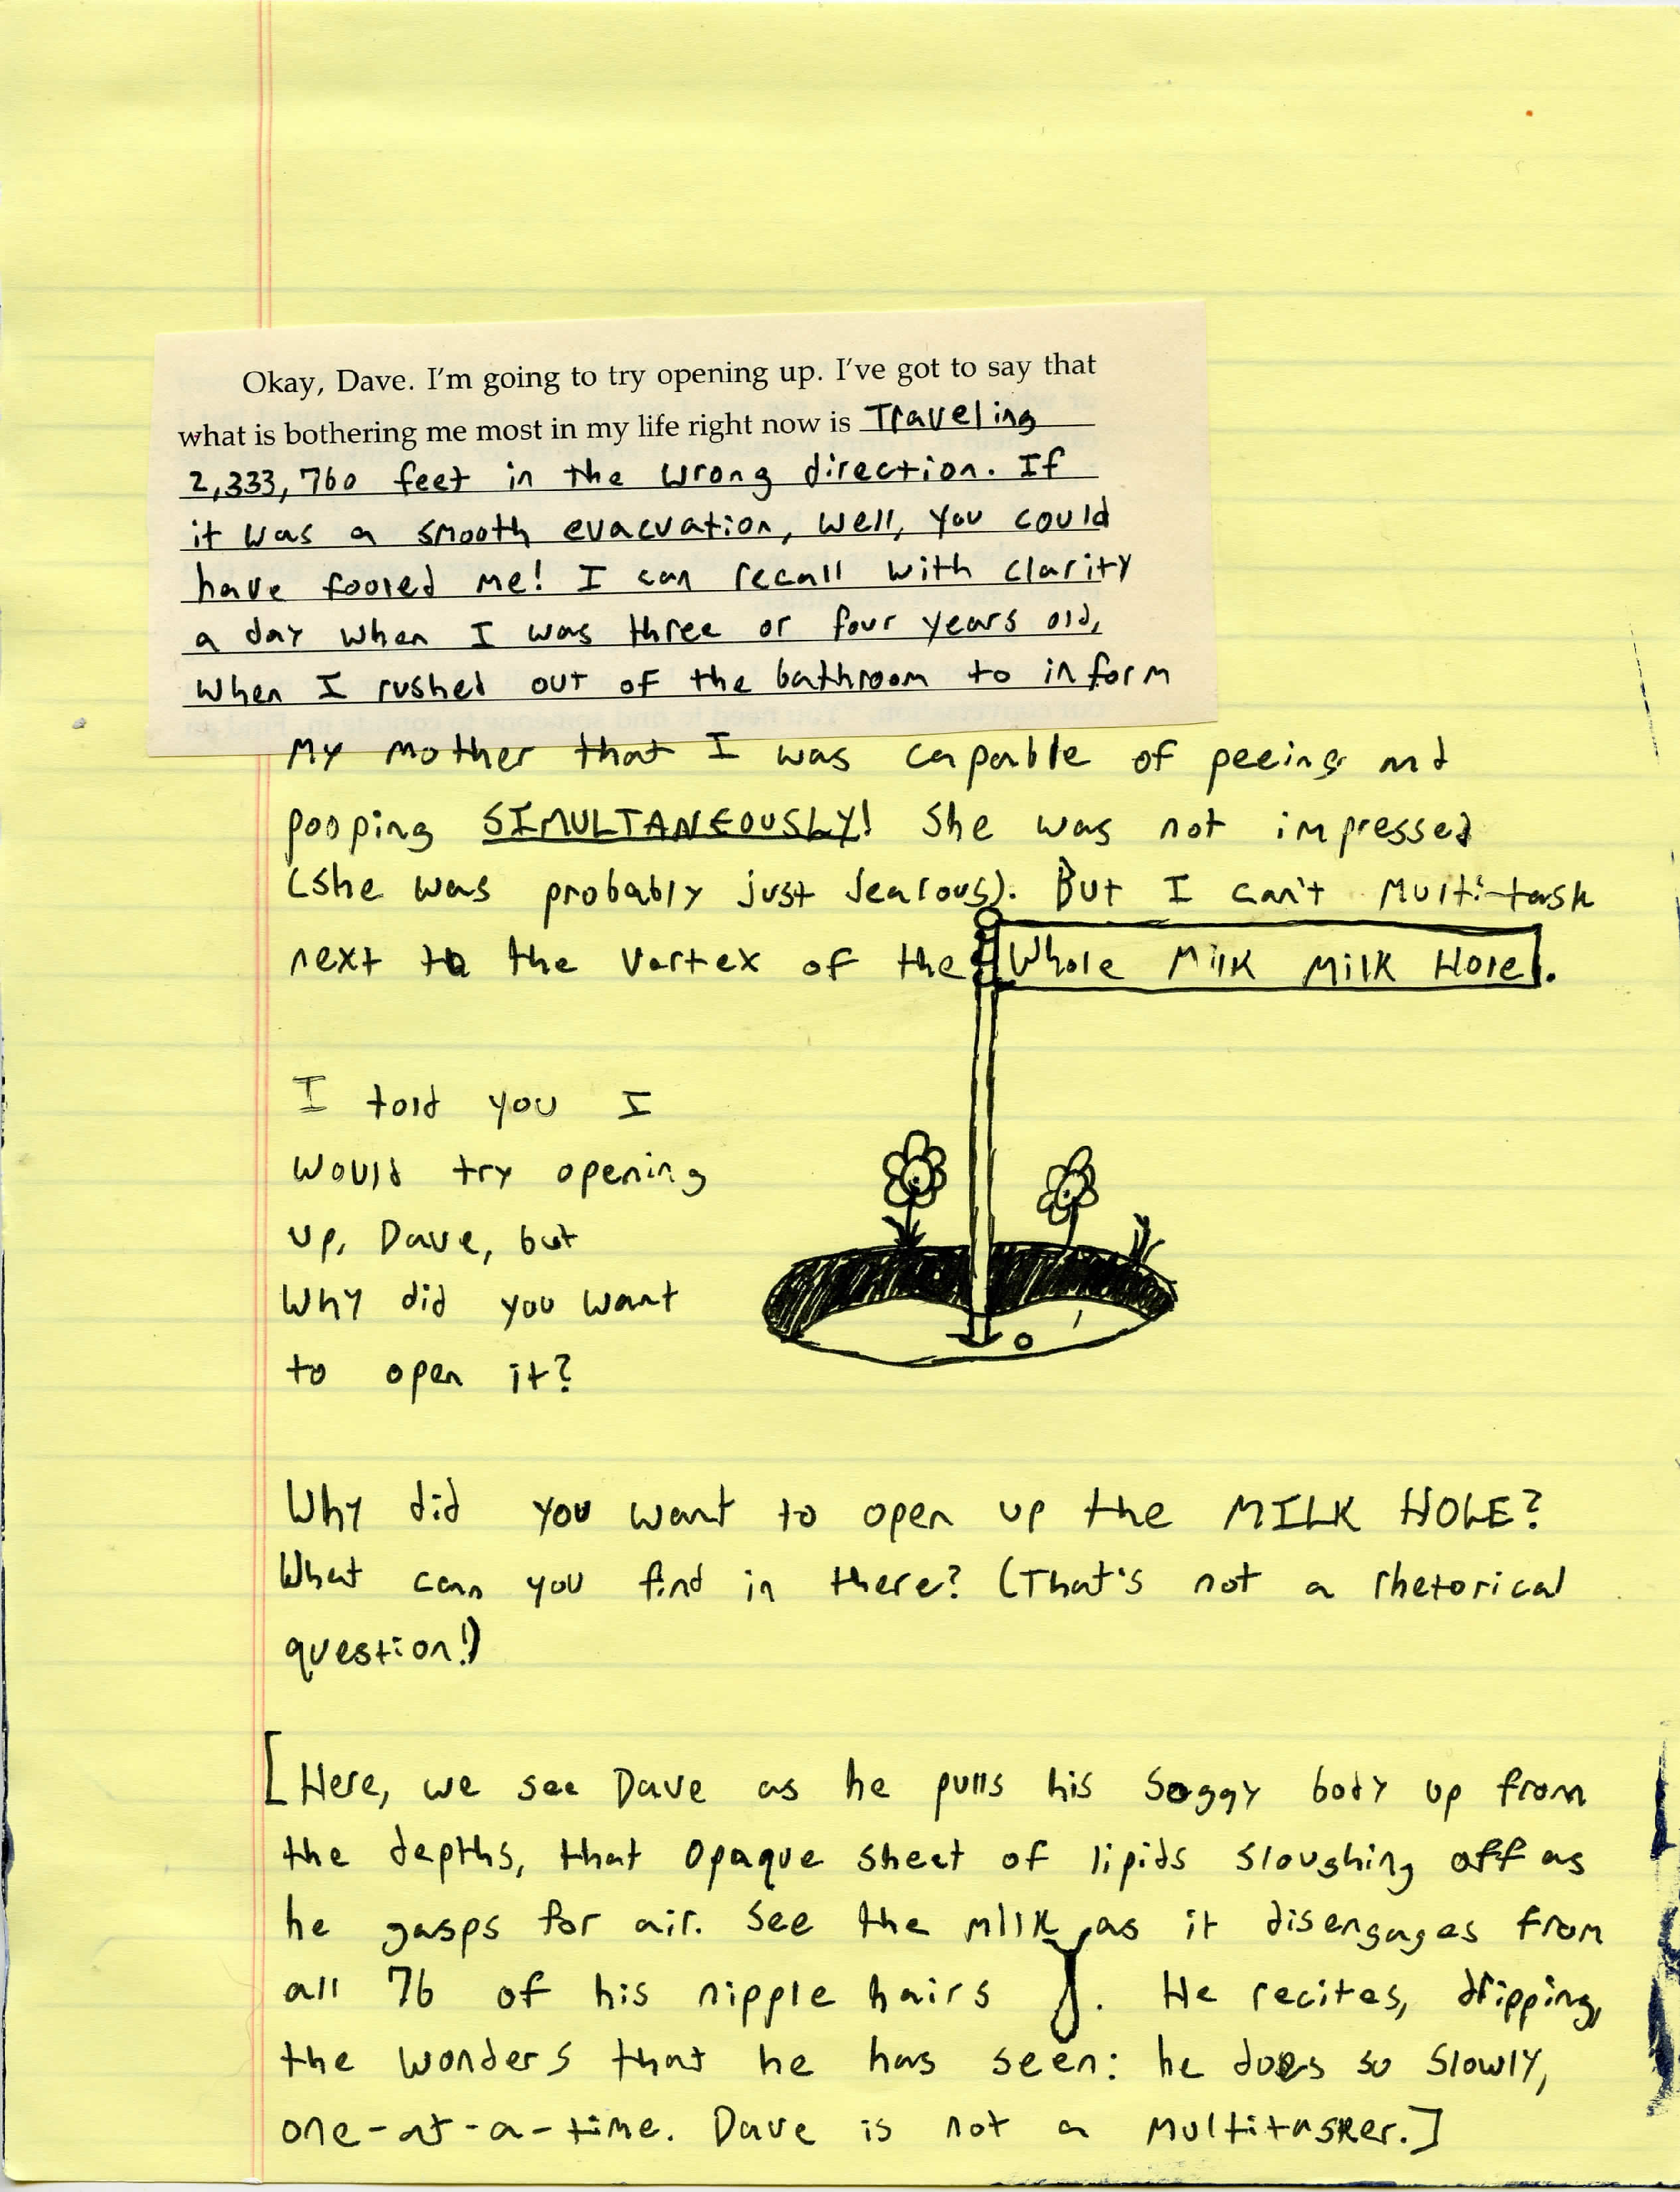 Okay, Dave. I'm going to try opening up. I've got to say that
what is bothering me most in my life right now is Traveling
2,333,760 feet in the wrong direction. If
it was a smooth evacuation, well, you could
have fooled me! I can recall with clarity
a day when I was three or four years old,
when I rushed out of the bathroom to inform
my mother that I was capable of peeing and
pooping SIMULTANEOUSLY! She was not impressed
(she was probably just jealous). But I can't multi-task
next to the vortex of the Whole Milk Milk Hole.
I told you I
would try opening
up, Dave, but
why did you want
to open it?
Why did you want to open up the MILK HOLE?
What can you find in there? (That's not a rhetorical
question!)
[Here, we see Dave as he pulls his soggy body up from
the depths, that opaque sheet of lipids sloughing off as
he gasps for air. See the milk as it disengages from
all 76 of his nipple hairs. He recites, dripping,
the wonders that he has seen: he does so slowly,
one-at-a-time. Dave is not a multitasker.]